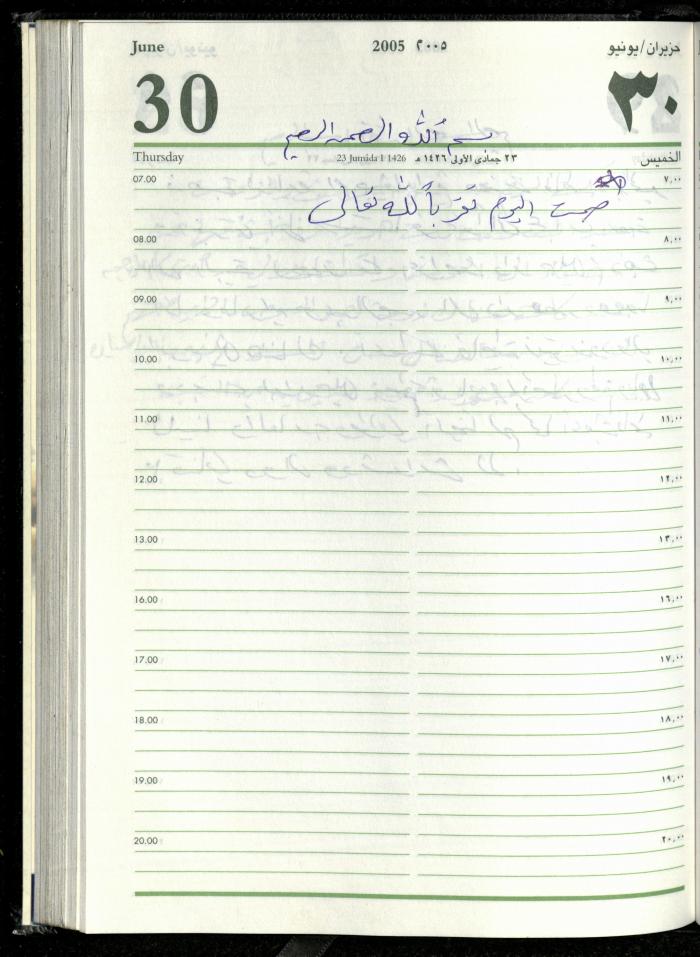 June 2005 ٢٠٠٥ حزيران/يونيو
30 ٣٠
بسم الله الرحمن الرحيم
Thursday 23 Jumada I 1426 ٢٣ جمادى الأولى ١٤٢٦ هـ الخميس
07.00 ٧,٠٠
صمت اليوم تقرباً لله تعالى
08.00 ٨,٠٠
09.00 ٩,٠٠
10.00 ١٠,٠٠
11.00 ١١,٠٠
12.00 ١٢,٠٠
13.00 ١٣,٠٠
16.00 ١٦,٠٠
17.00 ١٧,٠٠
18.00 ١٨,٠٠
19.00 ١٩,٠٠
20.00 ٢٠,٠٠